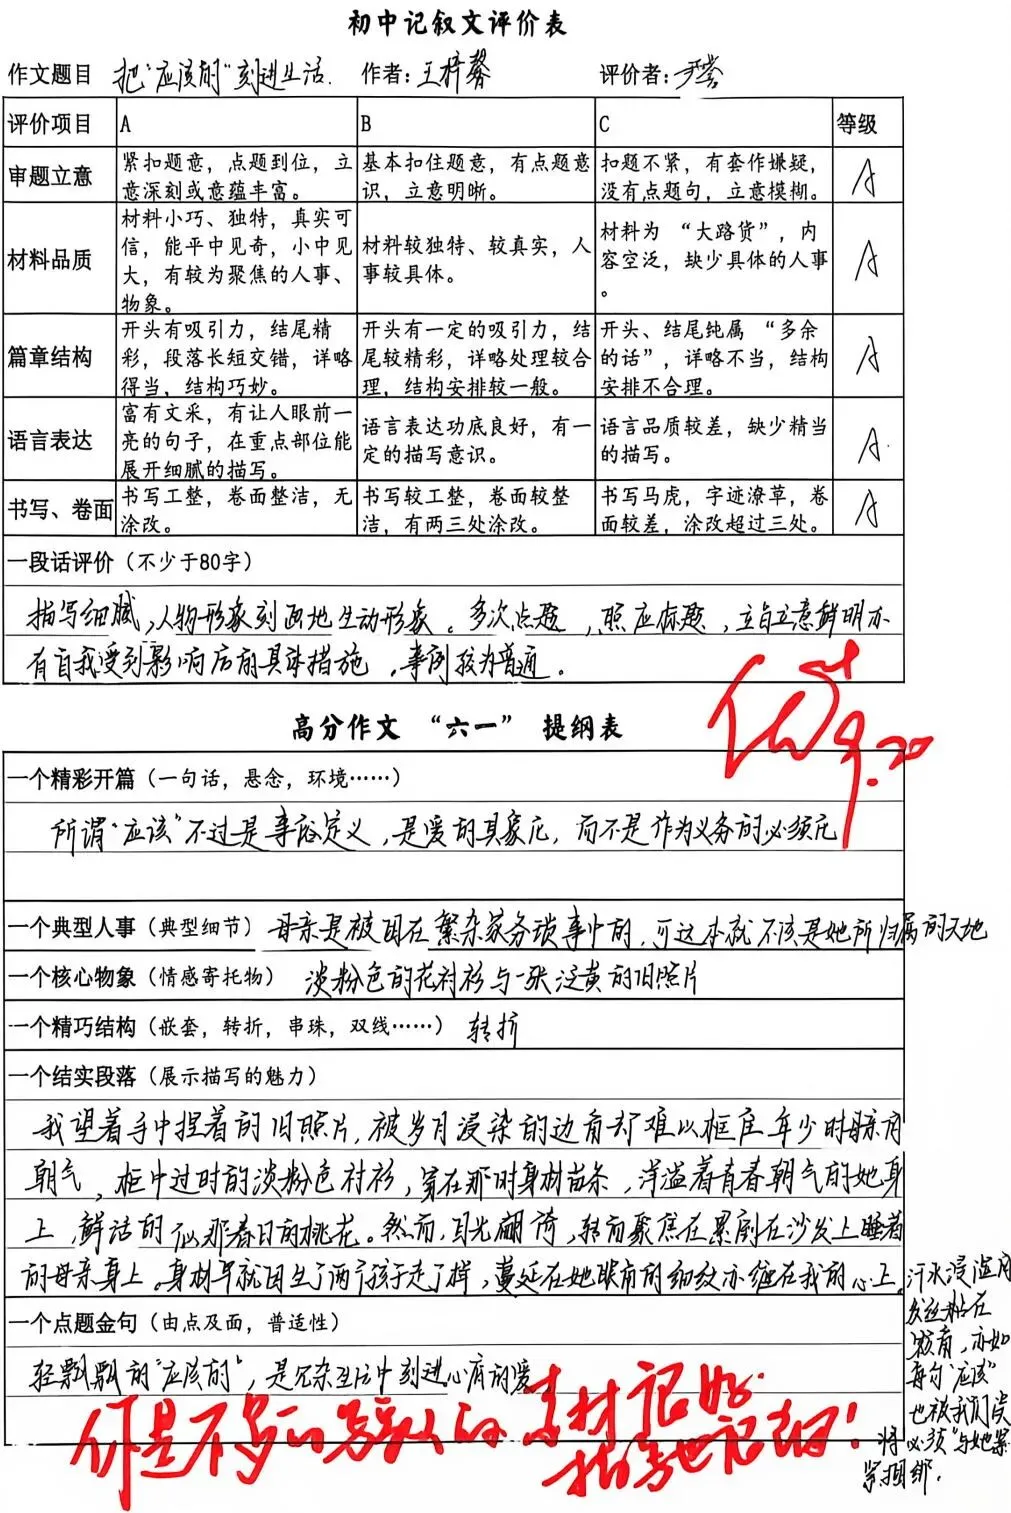 初中记叙文评价表
作文题目 把“应该的”刻进生活. 作者: 王梓馨 评价者:
评价项目 A B C 等级
审题立意 紧扣题意，点题到位，立意深刻或意蕴丰富。 基本扣住题意，有点题意识，立意明晰。 扣题不紧，有套作嫌疑，没有点题句，立意模糊。 A
材料品质 材料小巧、独特，真实可信，能平中见奇，小中见大，有较为聚焦的人事、物象。 材料较独特、较真实，人事较具体。 材料为 “大路货”，内容空泛，缺少具体的人事。 A
篇章结构 开头有吸引力，结尾精彩，段落长短交错，详略得当，结构巧妙。 开头有一定的吸引力，结尾较精彩，详略处理较合理，结构安排较一般。 开头、结尾纯属 “多余的话”，详略不当，结构安排不合理。 A
语言表达 富有文采，有让人眼前一亮的句子，在重点部位能展开细腻的描写。 语言表达功底良好，有一定的描写意识。 语言品质较差，缺少精当的描写。 A
书写、卷面 书写工整，卷面整洁，无涂改。 书写较工整，卷面较整洁，有两三处涂改。 书写马虎，字迹潦草，卷面较差，涂改超过三处。 A
一段话评价（不少于80字）
描写细腻，人物形象刻画地生动形象。多次点题，照应标题，立意鲜明亦
有自我受到影响后的具体措施，事例较为普通。
优+
9.20
高分作文 “六一” 提纲表
一个精彩开篇（一句话，悬念，环境……）
所谓“应该”不过是事俗定义，是爱的具象化，而不是作为义务的必须化
一个典型人事（典型细节） 母亲是被困在繁杂家务琐事中的，可这本就不该是她所归属的天地
一个核心物象（情感寄托物） 淡粉色的花衬衫与一张泛黄的旧照片
一个精巧结构（嵌套，转折，串珠，双线……） 转折
一个结实段落（展示描写的魅力）
我望着手中捏着的旧照片，被岁月浸染的边角却难以框住年少时母亲的
朝气，柜中过时的淡粉色衬衫，穿在那时身材苗条，洋溢着青春朝气的她身
上，鲜活的似那春日的桃花。然而，目光翩倚，转而聚焦在累倒在沙发上睡着
的母亲身上。身材早就因生了两个孩子走了样，蔓延在她眼角的细纹亦缠在我的心上。
汗水浸溢的
发丝粘在
亦如
每句“应该”
也被我们
将“必须”与她紧
紧捆绑.
一个点题金句（由点及面，普适性）
轻飘飘的“应该的”，是冗杂生活中刻进心底的爱